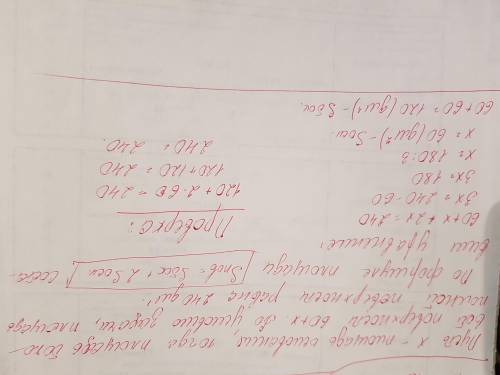 Пусть x – площадь основания, тогда площадь боко-
вой поверхности 60+x. По условию задачи, площадь
полной поверхности равна 240 дм².
По формуле площади Sпов = Sбок + 2 Sосн соста-
вим уравнение:
60+x + 2x = 240
3x = 240 - 60
3x = 180
x = 180:3
x = 60 (дм²) - Sосн.
60 + 60 = 120 (дм²) - Sбок.
Проверка:
120 + 2·60 = 240
120 + 120 = 240
240 = 240.